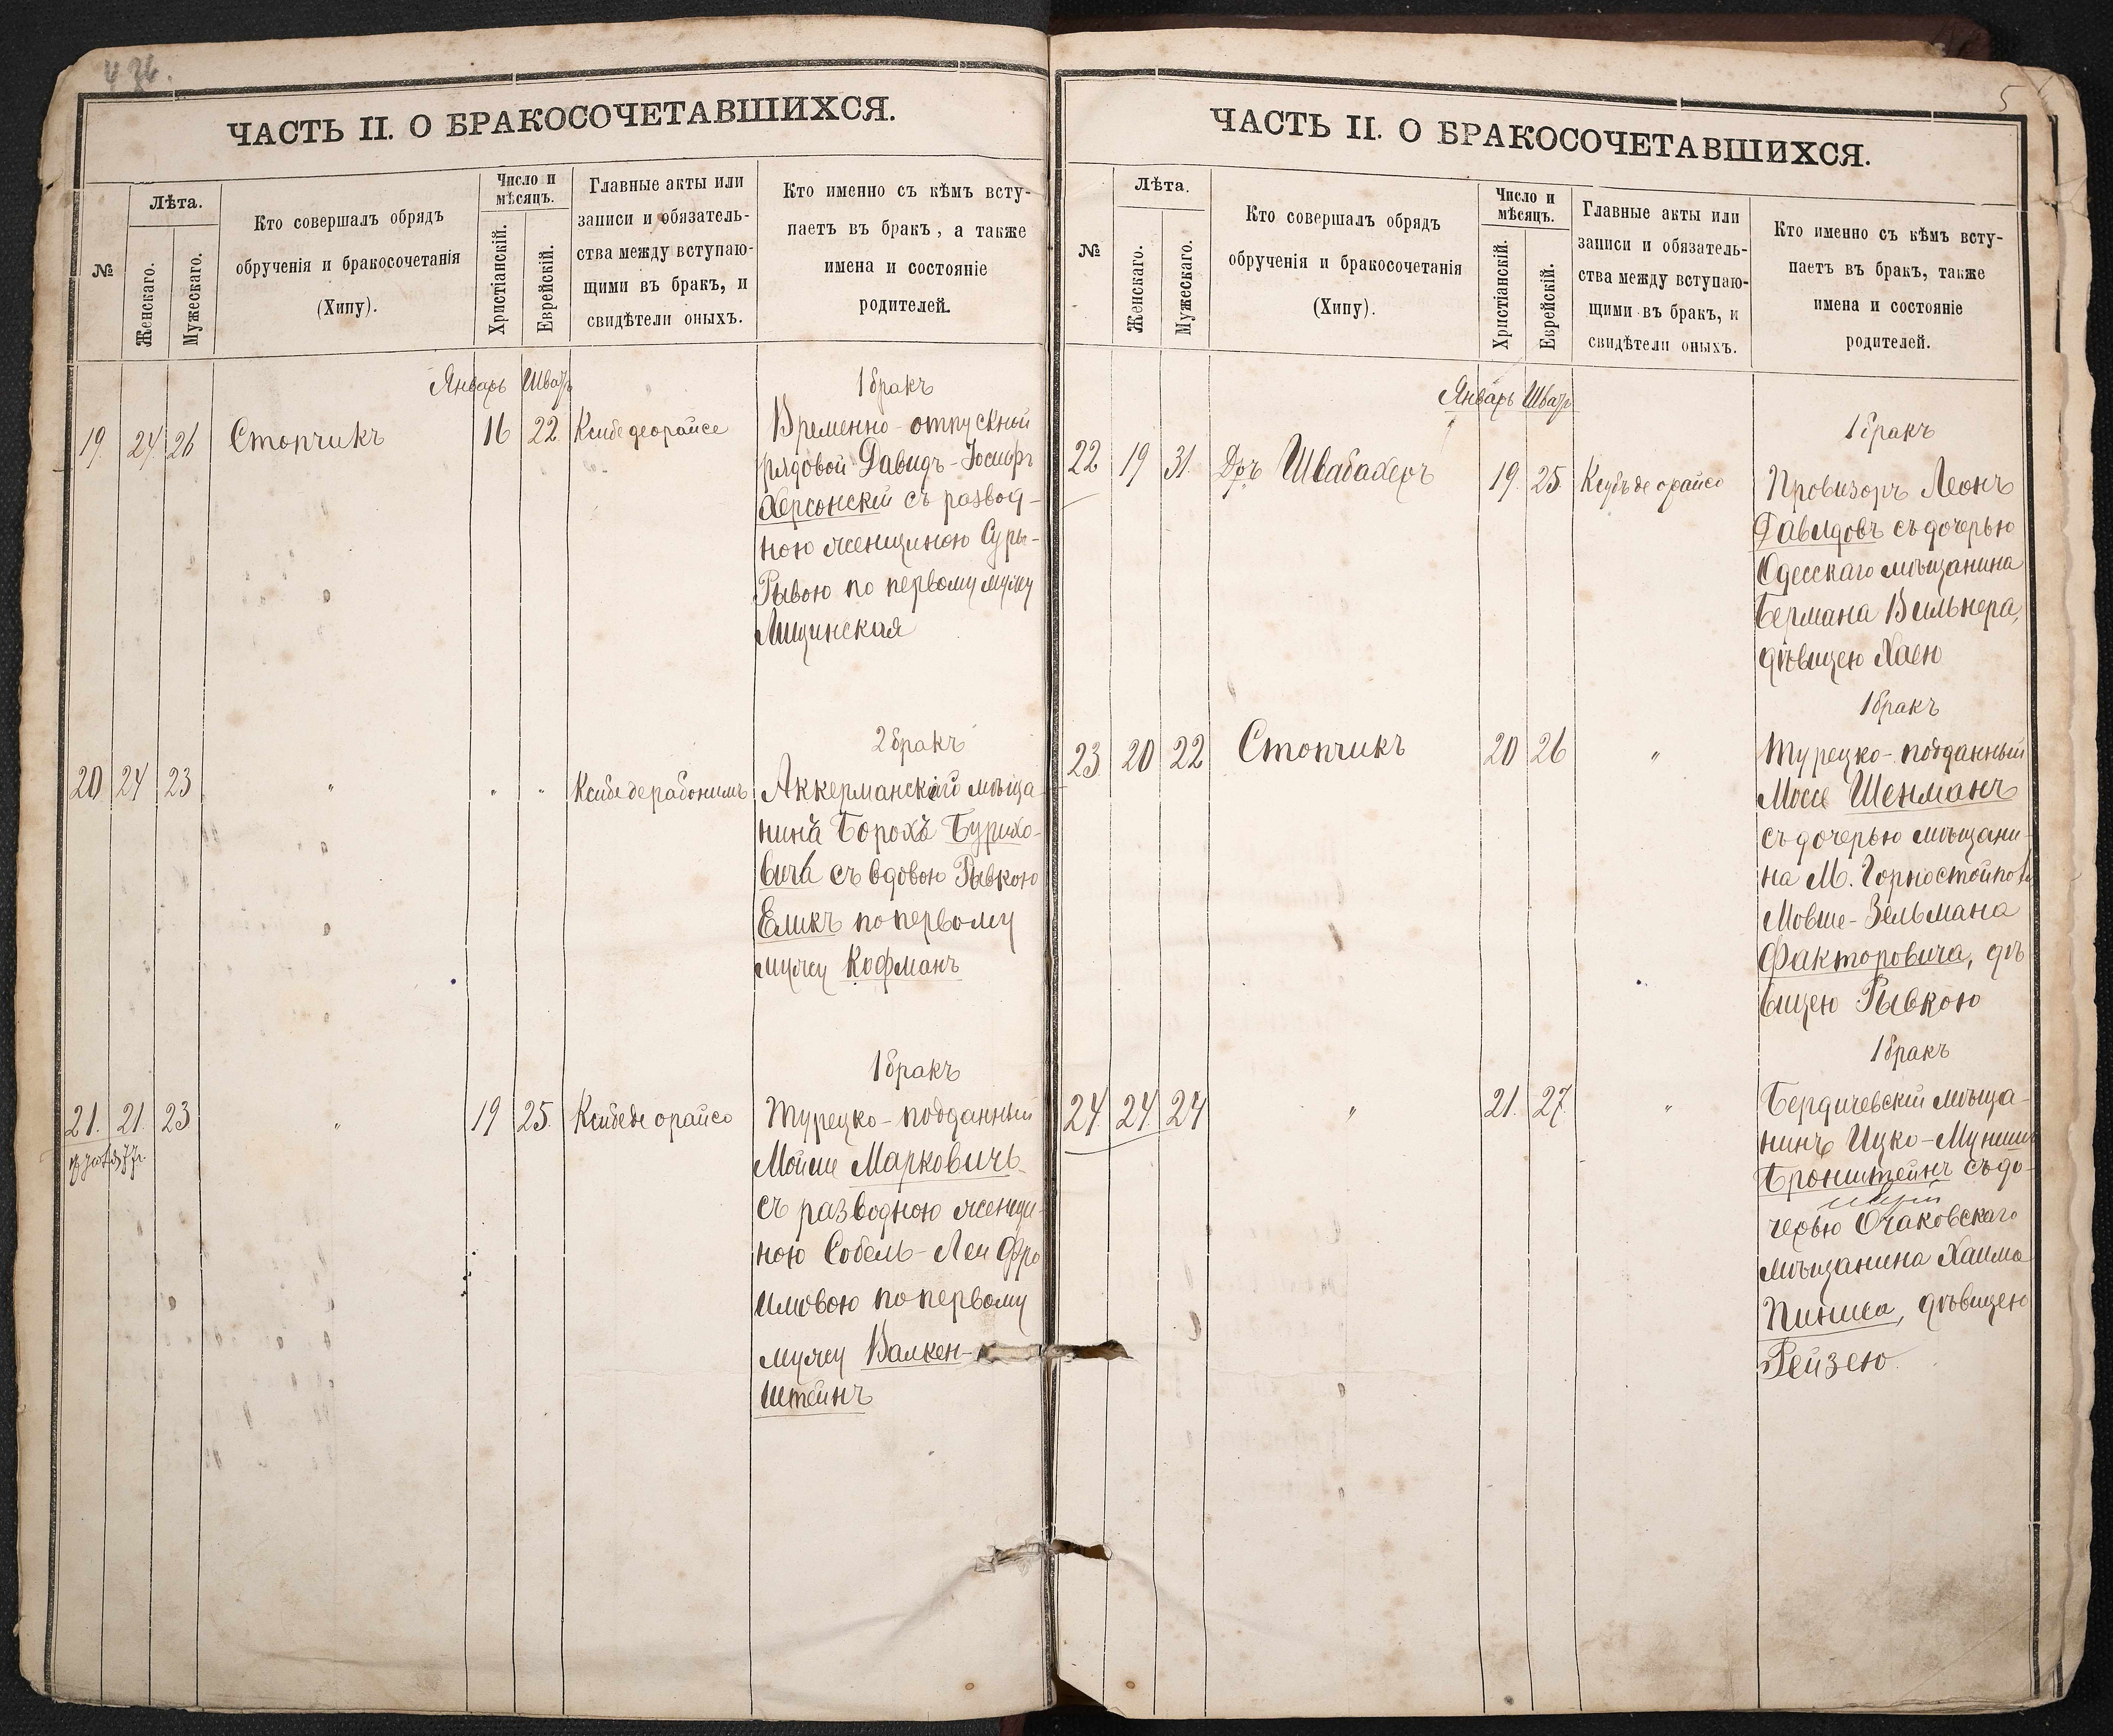 ЧАСТЬ II. О БРАКОСОЧЕТАВШИХСЯ.
№
Лѣта.
Женскаго.
Мужескаго.
Кто совершалъ обрядъ
обрученія и бракосочетанія
(Хипу).
Число и
мѣсяцъ.
Христіанскій.
Еврейскій.
Главные акты или
записи и обязатель-
ства между вступаю-
щими въ бракъ, и
свидѣтели оныхъ.
Кто именно съ кѣмъ всту-
паетъ въ бракъ, а также
имена и состояніе
родителей.
Январь Шватъ
1 бракъ
19. 24 26 Стопчикъ 16 22 Ксибе деорайсе Временно-отпускной
рядовой Давидъ-Іосифъ
Херсонскій съ развод-
ною женщиною Суры-
Рывою по первому мужу
Лищинская
2 бракъ
20 24 23 " " " Ксибе дерабонимъ Аккерманскаго мѣща
нина Борохъ Бурихо-
вича съ вдовою Рывкою
Еликъ по первому
мужу Кофманъ
1 бракъ
21. 21. 23 " 19 25. Ксибе де орайсо Турецко-подданный
Мойше Марковичъ
съ разводною женщи-
ною Собель-Леи Фро
имовою по первому
мужу Валкен-
штейнъ
ЧАСТЬ II. О БРАКОСОЧЕТАВШИХСЯ.
5
№
Лѣта.
Женскаго.
Мужескаго.
Кто совершалъ обрядъ
обрученія и бракосочетанія
(Хипу).
Число и
мѣсяцъ.
Христіанскій.
Еврейскій.
Главные акты или
записи и обязатель-
ства между вступаю-
щими въ бракъ, и
свидѣтели оныхъ.
Кто именно съ кѣмъ всту-
паетъ въ бракъ, также
имена и состояніе
родителей.
Январь Шватъ
1 бракъ
22 19 31. Д-ръ Швабахеръ 19. 25. Ксубъ де орайсо Провизоръ Леонъ
Давидовъ съ дочерью
Одесскаго мѣщанина
Германа Вильнера,
дѣвицею Хаею
1 бракъ
23. 20 22 Стопчикъ 20 26 " Турецко-подданный
Моссе Шенманъ
съ дочерью мѣщани-
на М. Горностойпол
Мовше-Зельмана
Факторовича, дѣ
вицею Рывкою
1 бракъ
24. 24. 24 " 21. 27. " Бердичевскій мѣща-
нинъ Ицко-Мунишъ
Бронштейнъ съ до-
черью Очаковскаго
мѣщанина Хаима
Пиниса, дѣвицею
Рейзею.